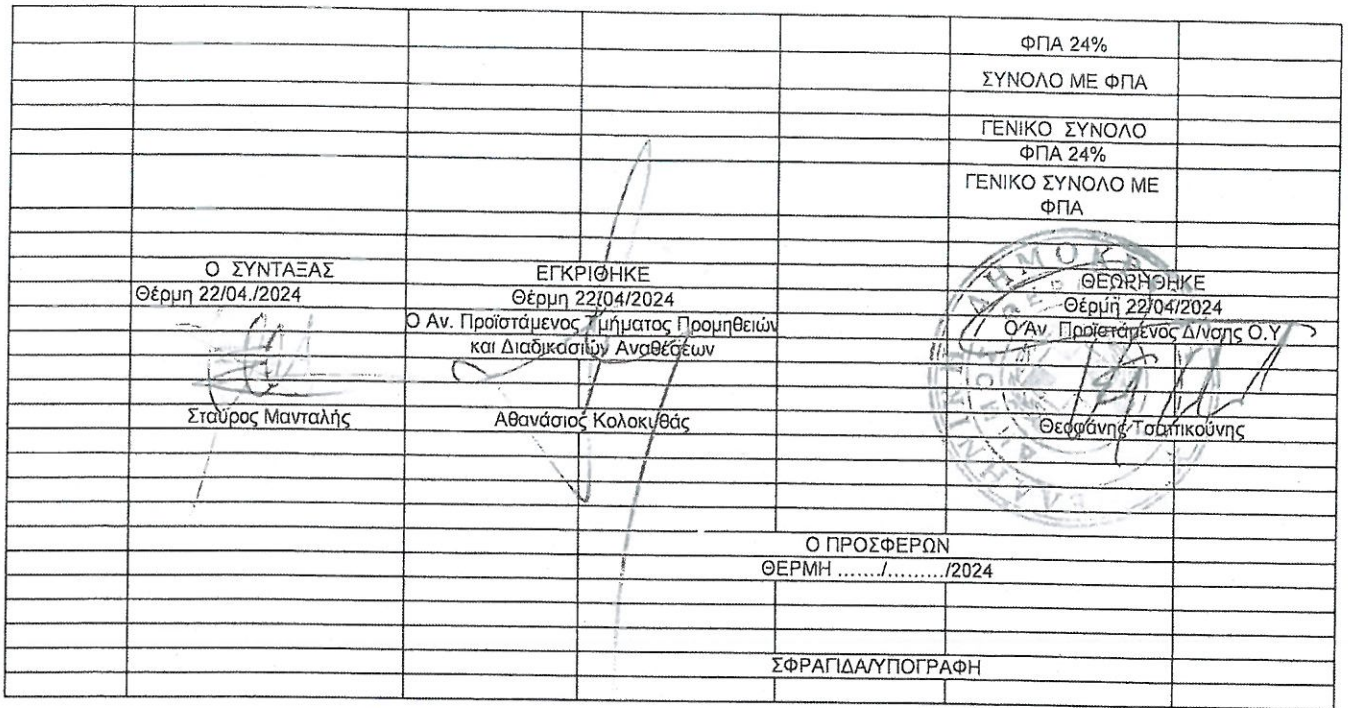 ΦΠΑ 24%
ΣΥΝΟΛΟ ΜΕ ΦΠΑ
ΓΕΝΙΚΟ ΣΥΝΟΛΟ
ΦΠΑ 24%
ΓΕΝΙΚΟ ΣΥΝΟΛΟ ΜΕ
ΦΠΑ
Ο ΣΥΝΤΑΞΑΣ
Θέρμη 22/04./2024
Σταύρος Μανταλής
ΕΓΚΡΙΘΗΚΕ
Θέρμη 22/04/2024
Ο Αν. Προϊστάμενος Τμήματος Προμηθειών
και Διαδικασιών Αναθέσεων
Αθανάσιος Κολοκυθάς
ΘΕΩΡΗΘΗΚΕ
Θέρμη 22/04/2024
Ο Αν. Προϊστάμενος Δ/νσης Ο.Υ
Θεοφάνης
Ο ΠΡΟΣΦΕΡΩΝ
ΘΕΡΜΗ ......./........./2024
ΣΦΡΑΓΙΔΑ/ΥΠΟΓΡΑΦΗ